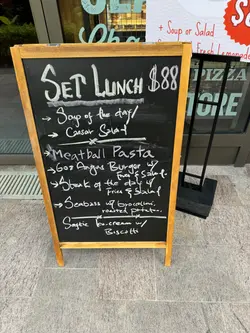 + Soup or Salad
+ Fresh Lemonade
PIZZA
STORE
SET LUNCH $88
→ Soup of the day/
→ Caesar Salad
Meatball Pasta
→ Angus Burger w/
Fries & Salad.
→ Steak of the day w/
Fries & Salad
→ Seabass w/ broccolini,
roasted potatoes.
ice-cream w/
Biscotti